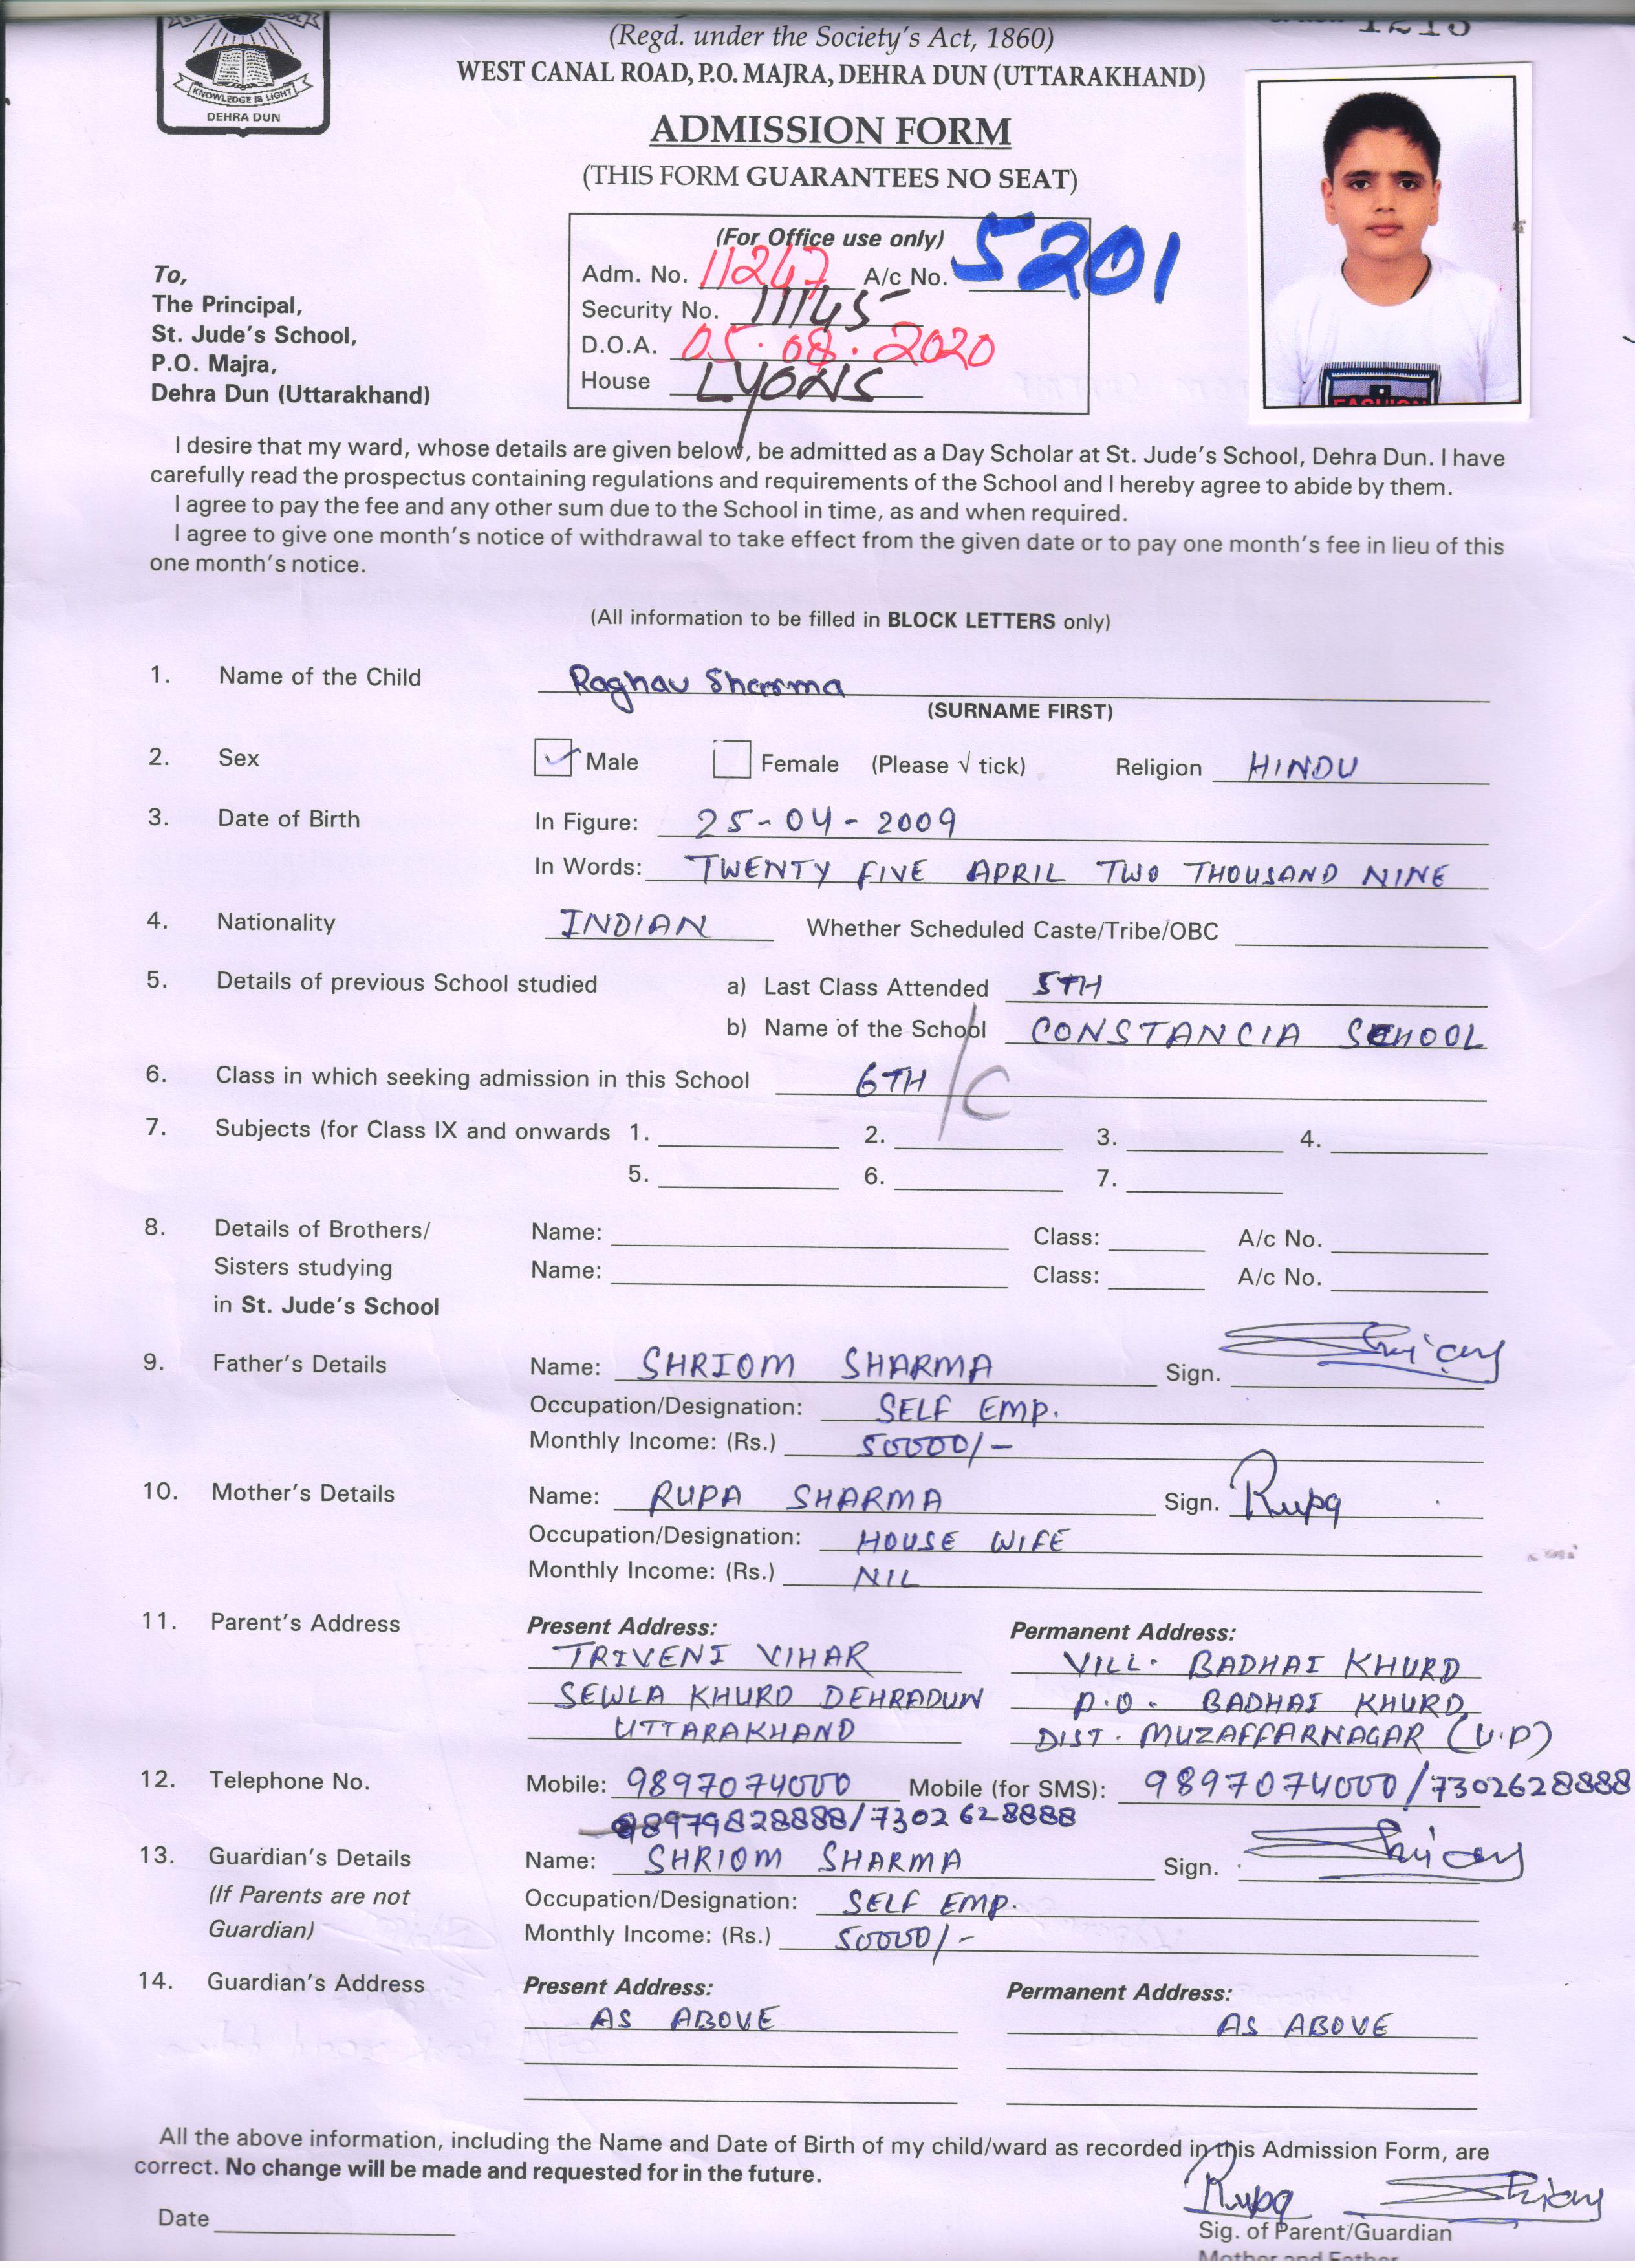 KNOWLEDGE IS LIGHT
DEHRA DUN
(Regd. under the Society's Act, 1860)
WEST CANAL ROAD, P.O. MAJRA, DEHRA DUN (UTTARAKHAND)
ADMISSION FORM
(THIS FORM GUARANTEES NO SEAT)
(For Office use only)
Adm. No. 11247 A/c No. 5201
Security No. 11145
D.O.A. 05.08.2020
House LYONS
FASHION
To,
The Principal,
St. Jude's School,
P.O. Majra,
Dehra Dun (Uttarakhand)
I desire that my ward, whose details are given below, be admitted as a Day Scholar at St. Jude's School, Dehra Dun. I have
carefully read the prospectus containing regulations and requirements of the School and I hereby agree to abide by them.
I agree to pay the fee and any other sum due to the School in time, as and when required.
I agree to give one month's notice of withdrawal to take effect from the given date or to pay one month's fee in lieu of this
one month's notice.
(All information to be filled in BLOCK LETTERS only)
1. Name of the Child Raghav Sharma
(SURNAME FIRST)
2. Sex Male Female (Please √ tick) Religion HINDU
3. Date of Birth In Figure: 25-04-2009
In Words: TWENTY FIVE APRIL TWO THOUSAND NINE
4. Nationality INDIAN Whether Scheduled Caste/Tribe/OBC
5. Details of previous School studied a) Last Class Attended 5TH
b) Name of the School CONSTANCIA SCHOOL
6. Class in which seeking admission in this School 6TH /C
7. Subjects (for Class IX and onwards 1. 2. 3. 4.
5. 6. 7.
8. Details of Brothers/ Name: Class: A/c No.
Sisters studying Name: Class: A/c No.
in St. Jude's School
9. Father's Details Name: SHRIOM SHARMA Sign.
Occupation/Designation: SELF EMP.
Monthly Income: (Rs.) 50000/-
10. Mother's Details Name: RUPA SHARMA Sign. Rupa
Occupation/Designation: HOUSE WIFE
Monthly Income: (Rs.) NIL
11. Parent's Address Present Address: Permanent Address:
TRIVENI VIHAR VILL. BADHAI KHURD
SEWLA KHURD DEHRADUN P.O. BADHAI KHURD
UTTARAKHAND DIST. MUZAFFARNAGAR (U.P)
12. Telephone No. Mobile: 9897074000 Mobile (for SMS): 9897074000/7302628888
/7302628888
13. Guardian's Details Name: SHRIOM SHARMA Sign.
(If Parents are not Occupation/Designation: SELF EMP.
Guardian) Monthly Income: (Rs.) 50000/-
14. Guardian's Address Present Address: Permanent Address:
AS ABOVE AS ABOVE
All the above information, including the Name and Date of Birth of my child/ward as recorded in this Admission Form, are
correct. No change will be made and requested for in the future.
Rupa
Date Sig. of Parent/Guardian
Mother and Father